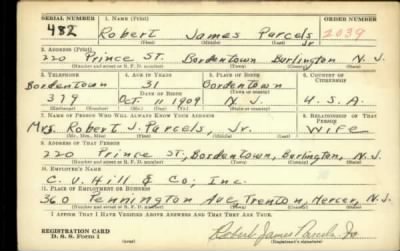 SERIAL NUMBER 1. NAME (Print) ORDER NUMBER
482 Robert James Parcels Jr 2039
(First) (Middle) (Last)
2. ADDRESS (Print)
220 Prince St. Bordentown Burlington N.J.
(Number and street or R. F. D. number) (Town) (County) (State)
3. TELEPHONE 4. AGE IN YEARS 5. PLACE OF BIRTH 6. COUNTRY OF CITIZENSHIP
Bordentown 31 Bordentown
DATE OF BIRTH
379 Oct. 11 1909 N.J. U.S.A.
(Exchange) (Number) (Mo.) (Day) (Yr.) (Town or county) (State or country)
7. NAME OF PERSON WHO WILL ALWAYS KNOW YOUR ADDRESS 8. RELATIONSHIP OF THAT PERSON
Mrs. Robert J. Parcels, Jr. Wife
(Mr., Mrs., Miss) (First) (Middle) (Last)
9. ADDRESS OF THAT PERSON
220 Prince St., Bordentown, Burlington, N.J.
(Number and street or R. F. D. number) (Town) (County) (State)
10. EMPLOYER'S NAME
C. V. Hill & Co., Inc.
11. PLACE OF EMPLOYMENT OR BUSINESS
360 Pennington Ave Trenton, Mercer, N.J.
(Number and street or R. F. D. number) (Town) (County) (State)
I AFFIRM THAT I HAVE VERIFIED ABOVE ANSWERS AND THAT THEY ARE TRUE.
REGISTRATION CARD
D. S. S. Form 1 Robert James Parcels Jr.
(Registrant's signature)